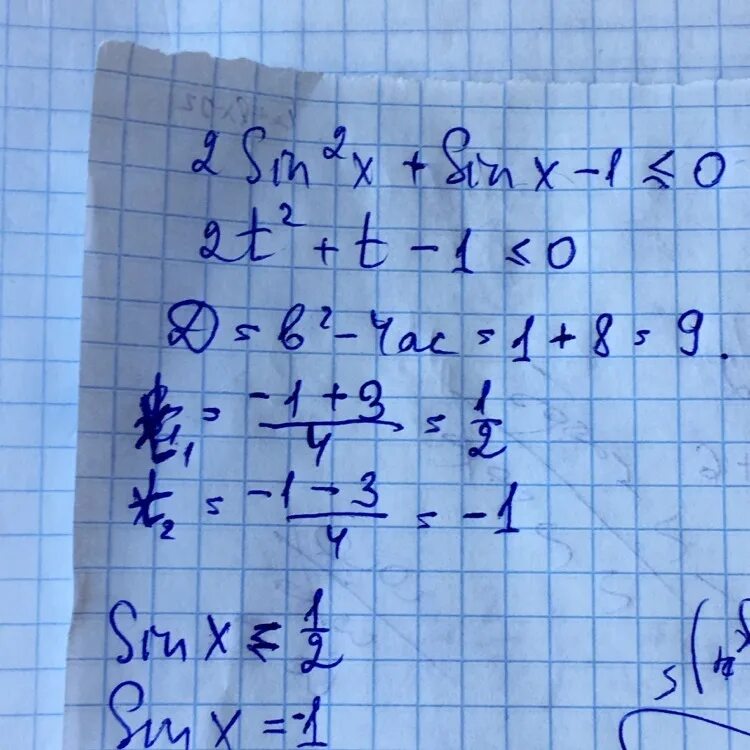 2 Sin²x + Sin x - 1 ≤ 0
2t² + t - 1 ≤ 0
D = b² - 4ac = 1 + 8 = 9.
t₁ = (-1 + 3)/4 = 1/2
t₂ = (-1 - 3)/4 = -1
Sin x ≤ 1/2
Sin x = -1